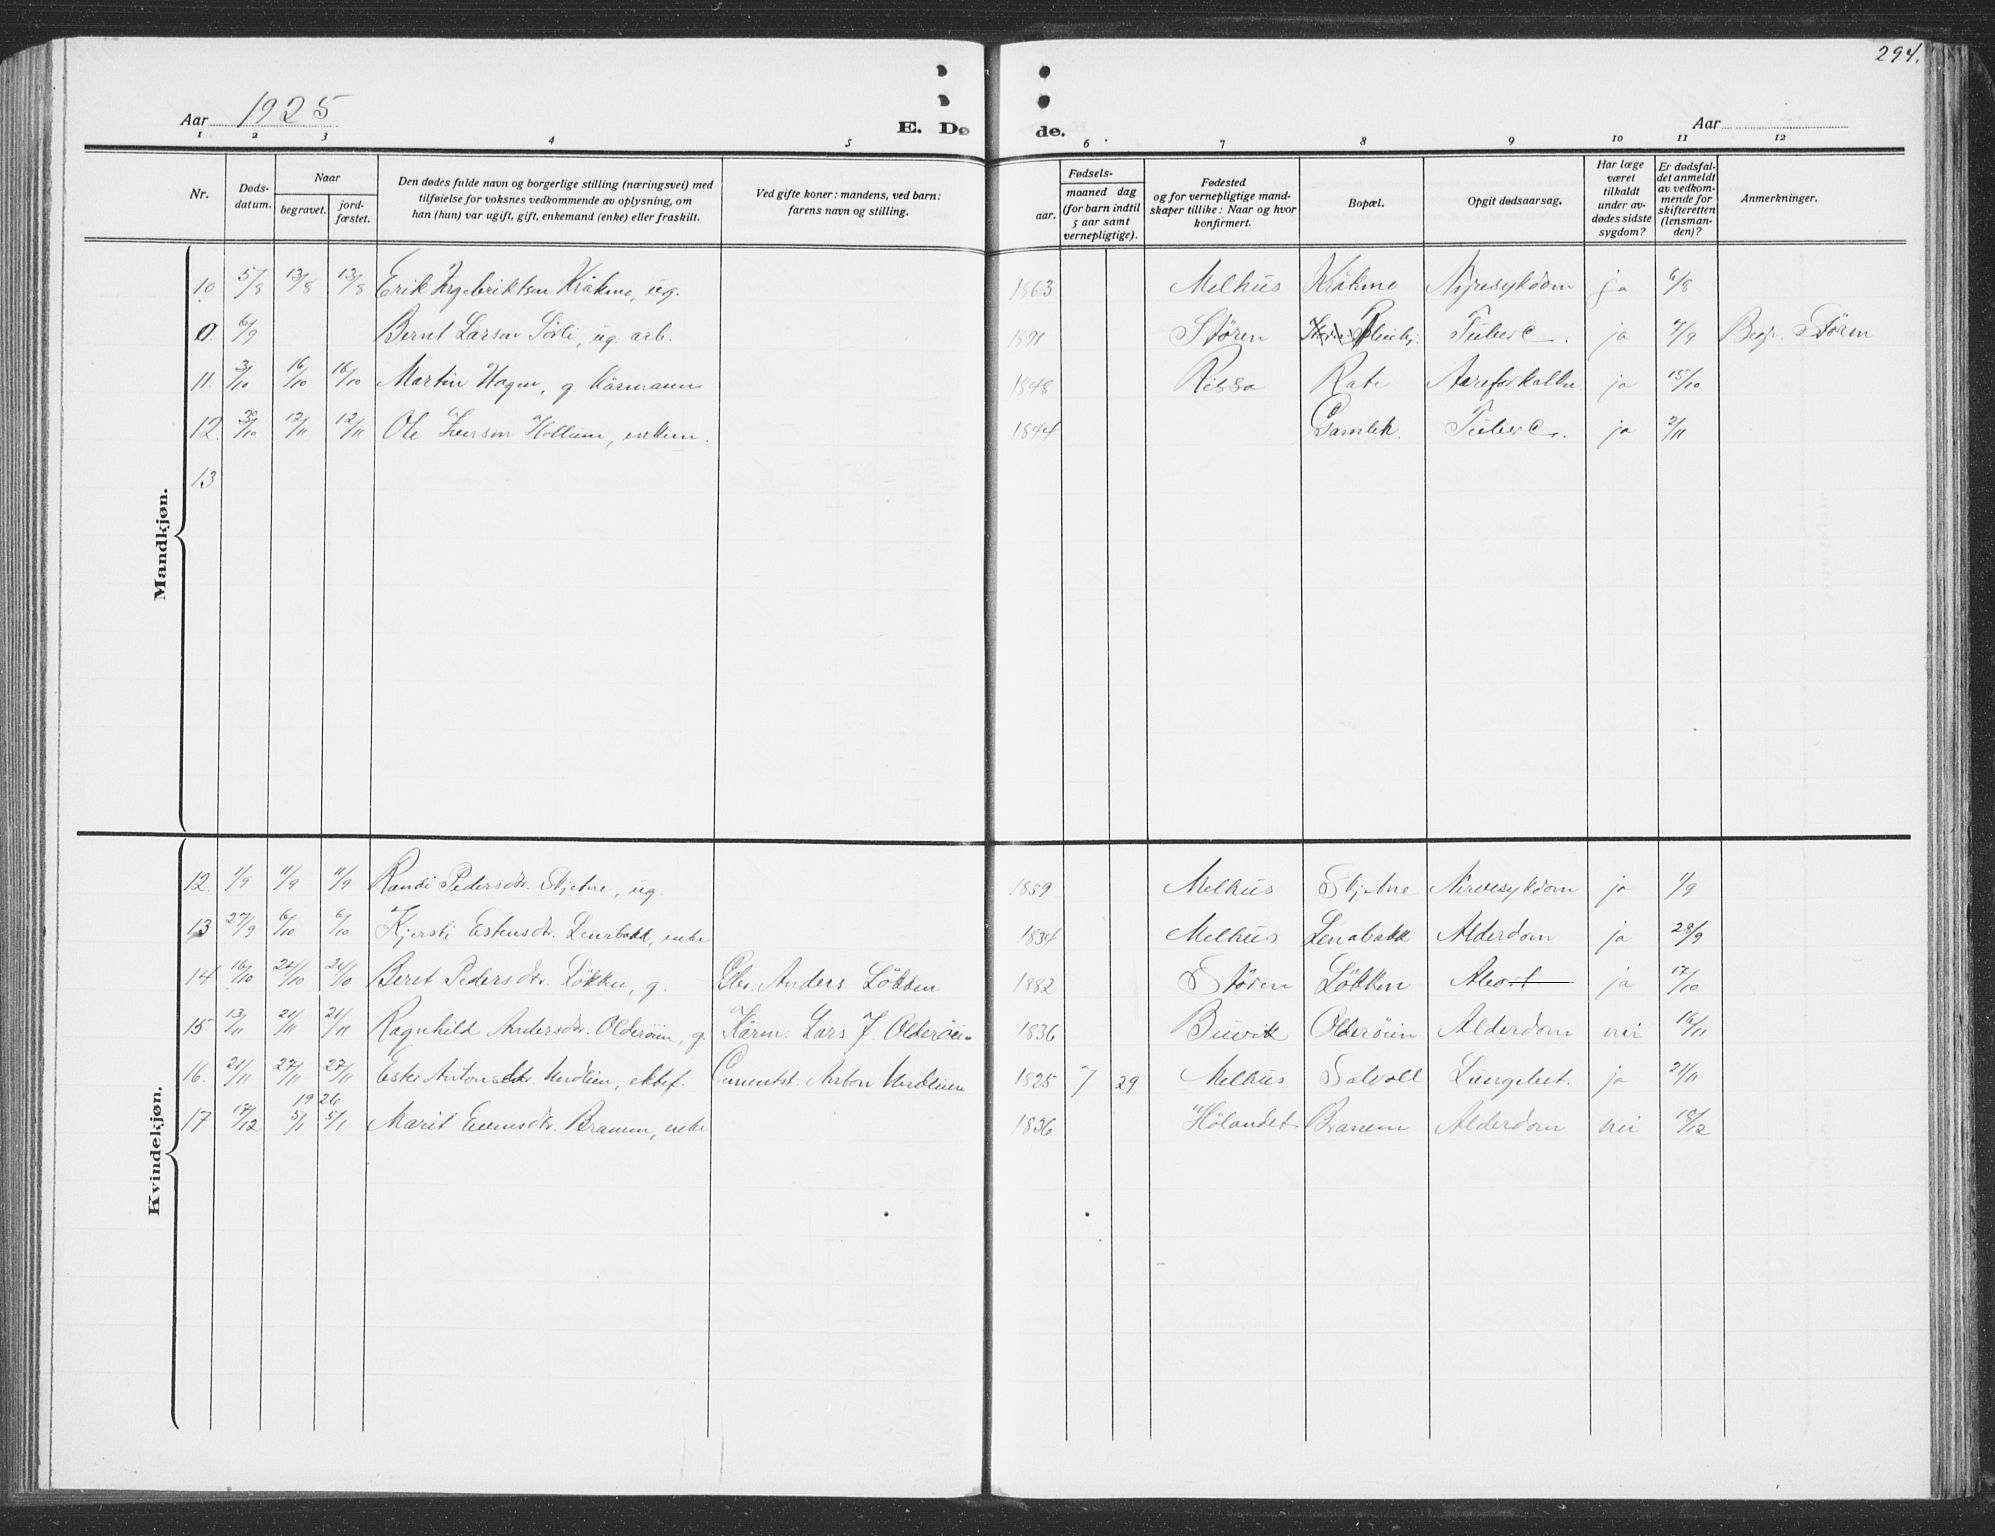 294.
Aar 1925
E. Dø de.
Aar
1 2 3 4 5 6 7 8 9 10 11 12
Nr.
Døds-
datum.
Naar
begravet.
jord-
fæstet.
Den dødes fulde navn og borgerlige stilling (næringsvei) med
tilføielse for voksnes vedkommende av oplysning, om
han (hun) var ugift, gift, enkemand (enke) eller fraskilt.
Ved gifte koner: mandens, ved barn:
farens navn og stilling.
Fødsels-
aar.
maaned dag
(for barn indtil
5 aar samt
vernepligtige).
Fødested
og for vernepligtige mand-
skaper tillike: Naar og hvor
konfirmert.
Bopæl.
Opgit dødsaarsag.
Har læge
været
tilkaldt
under av-
dødes sidste
sygdom?
Er dødsfal-
det anmeldt
av vedkom-
mende for
skifteretten
(lensman-
den)?
Anmerkninger.
Mandkjøn.
10 5/8 13/8 13/8 Erik Ingebriktsen Kråkmo, ug. 1863 Melhus Kråkmo Nyresykdom ja 6/8
0. 6/9 Bernt Larsen Sørli, ug. arb. 1891 Støren Tuberc. ja 7/9 Begr. Støren
11. 3/10 16/10 16/10 Martin Hagen, g. Kårmann 1848 Rissa Rate Aareforkalkn. ja 15/10
12. 30/10 12/11 12/11 Ole Iversen Hollum, enkem. 1844 Gamleh. Tuberc. ja 2/11
13
Kvindekjøn.
12. 1/9 11/9 11/9 Randi Pedersdtr. Skjetne, ug. 1859 Melhus Skjetne Nervesykdom ja 1/9
13 27/9 6/10 6/10 Kjersti Estensdtr. Lenabakk, enke 1834 Melhus Lenabakk Alderdom ja 28/9
14 16/10 24/10 24/10 Beret Pedersdtr. Løkken, g. Gbr. Anders Løkken 1882 Støren Løkken Abort ja 17/10
15 13/11 21/11 21/11 Ragnhild Andersdtr. Olderøien, g. Kårm. Lars J. Olderøien 1836 Buvik Olderøien Alderdom nei 16/11
16. 21/11 27/11 27/11 Ester Antonsdtr. ektef. Cementst. Anton 1925 7 29 Melhus Salvoll Lungebet. ja 21/11
1926
17 17/12 5/1 5/1 Marit Evensdtr. Branem, enke 1836 Hølandet Branem Alderdom nei 18/12